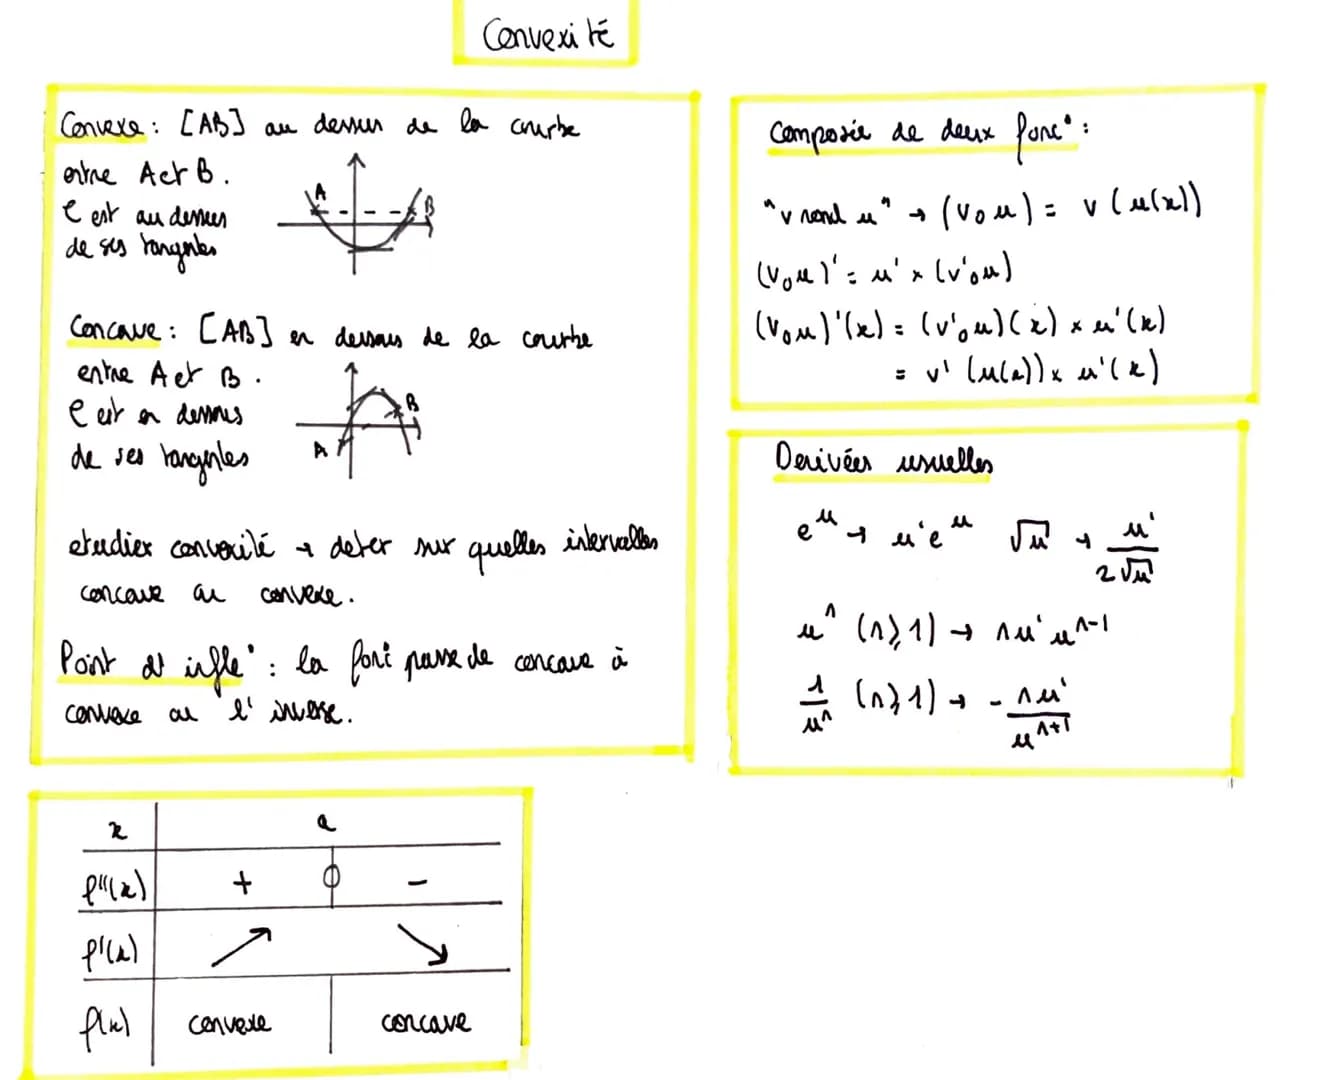 Convexité
Convexe : [AB] au dessus de la courbe
entre A et B.
A
B
C est au dessus
de ses tangentes
Concave : [AB] en dessous de la courbe
entre A et B.
A
B
C est en dessous
de ses tangentes
etudier convexité → deter sur quelles intervalles
concave ou convexe.
Point d'inflc° : la fonc passe de concave à
convexe ou l'inverse.
x a
f''(x) + 0 -
f'(x) ↗ ↘
f(x) convexe concave
Composée de deux fonc° :
"v rond u" → (v∘u) = v(u(x))
(v∘u)' = u' × (v'∘u)
(v∘u)'(x) = (v'∘u)(x) × u'(x)
= v'(u(x)) × u'(x)
Derivées usuelles
e^u → u'e^u √u → u'/2√u
u^n (n⩾1) → nu'u^n-1
1/u^n (n⩾1) → - nu'/u^n+1